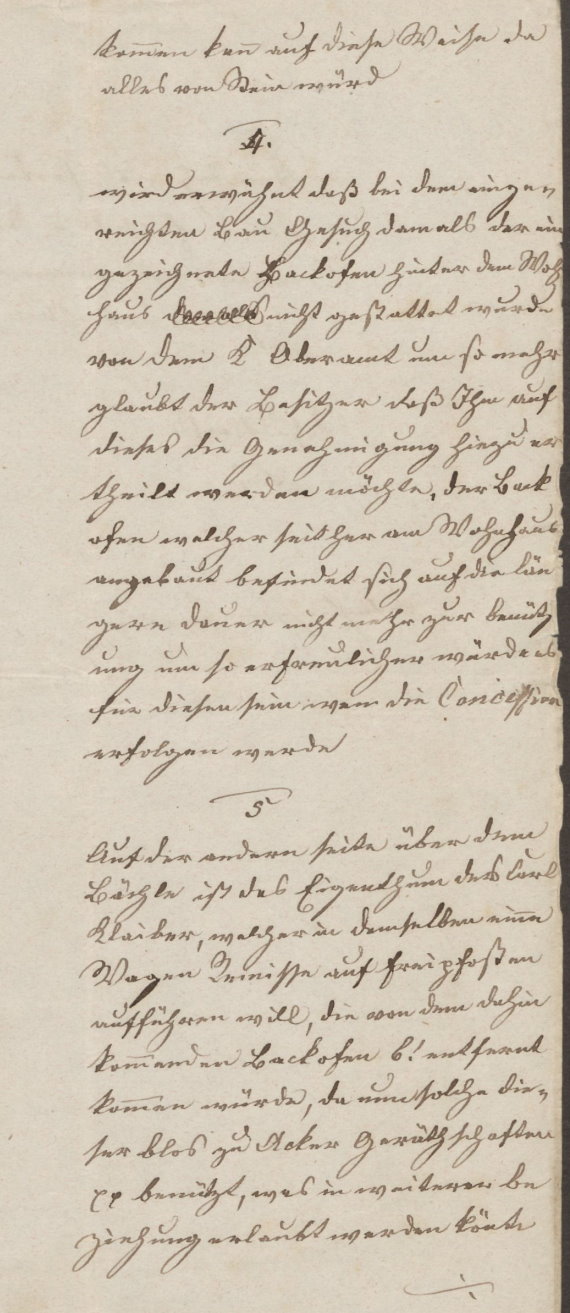 kom̄en kan̄ auf diese Weise da
alles von Stein würd
4.
wird erwähnt daß bei dem einge-
reichten Bau Gesuch damals der ein
gezeichnete Backofen hinter dem Woh
haus nicht gestattet wurde
von dem K Oberamt um so mehr
glaubt der Besitzer daß Ihm auf
dieses die Genehmigung hiezu er
theilt werden möchte, der Back
ofen welcher seither am Wohnhaus
angebaut befindet sich auf die län
gere Dauer nicht mehr zur benütz
ung um so erfreulicher würde es
für diesen sein wen die Concession
erfolgen werde
5
Auf der andern seite über dem
Bächle ist das Eigenthum des Carl
Klaiber, welcher in demselben eine
Wagen Remisse auf Freipfosten
aufführen will, die von dem dahin
kom̄enden Backofen 6.' entfernt
kom̄en würde, da nun solche die-
ser blos zu Acker Geräthschaften
benützt, was in weiterer be
ziehung erlaubt werden könte